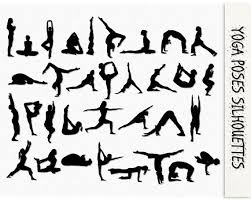 YOGA POSES SILHOUETTES